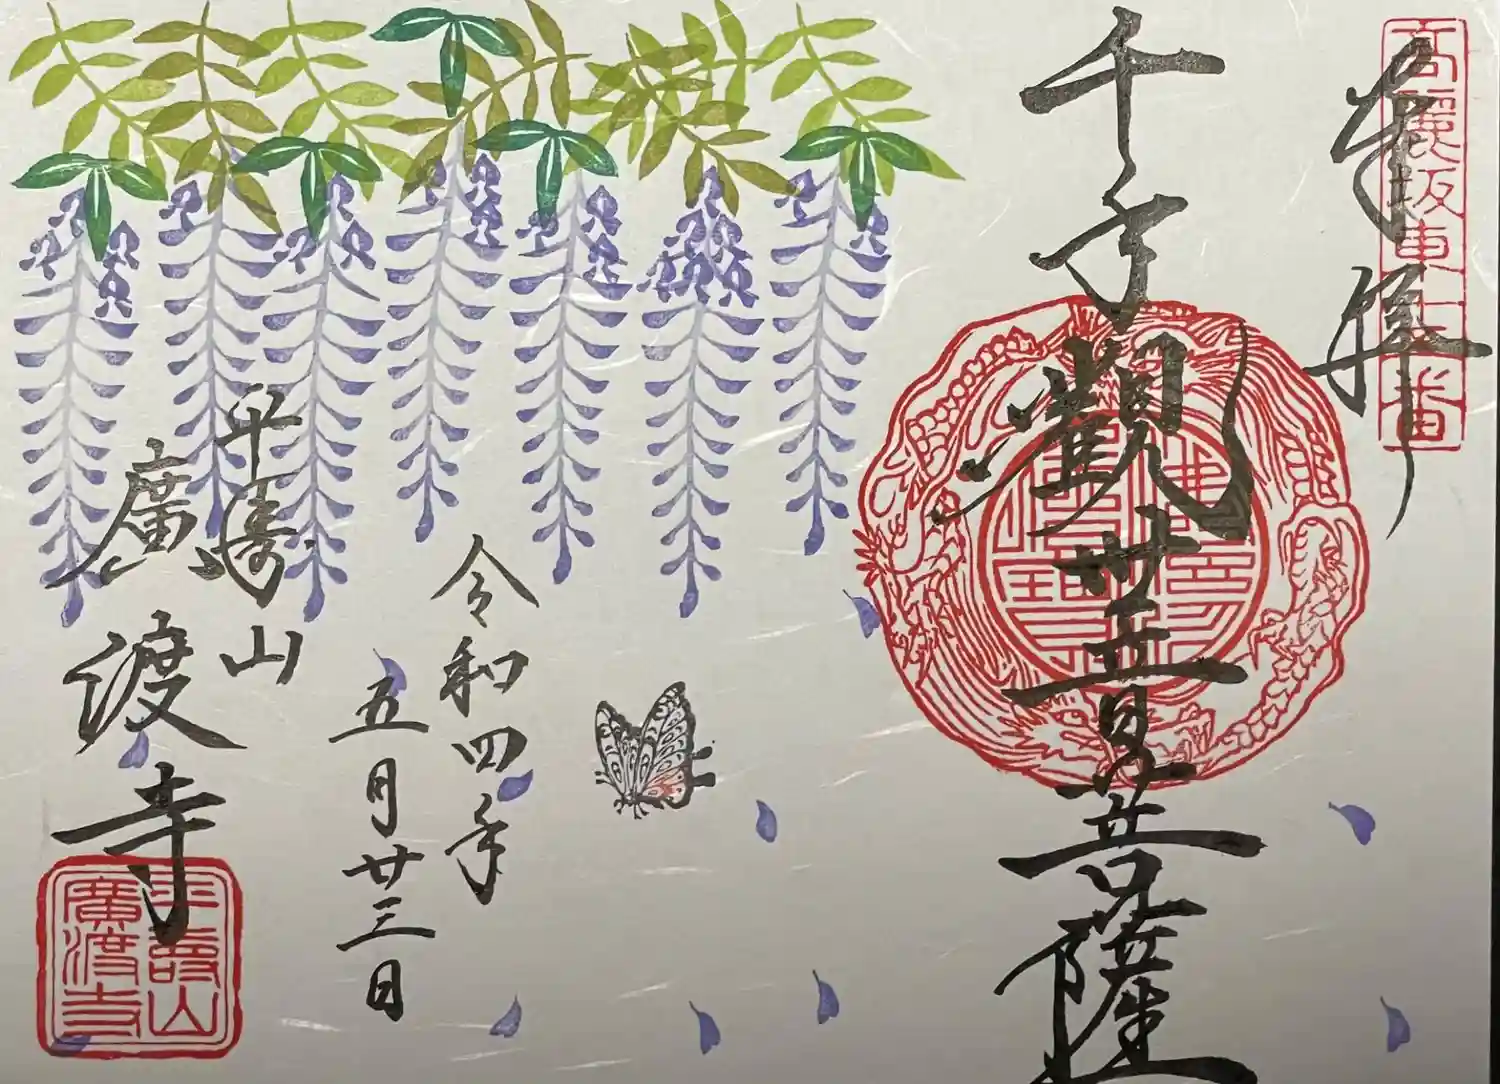 奉拝
高麗坂東
番
千手觀世音菩薩
佛法
僧寶
令和四年
五月廿三日
平壽山
廣渡寺
平壽山
廣渡寺